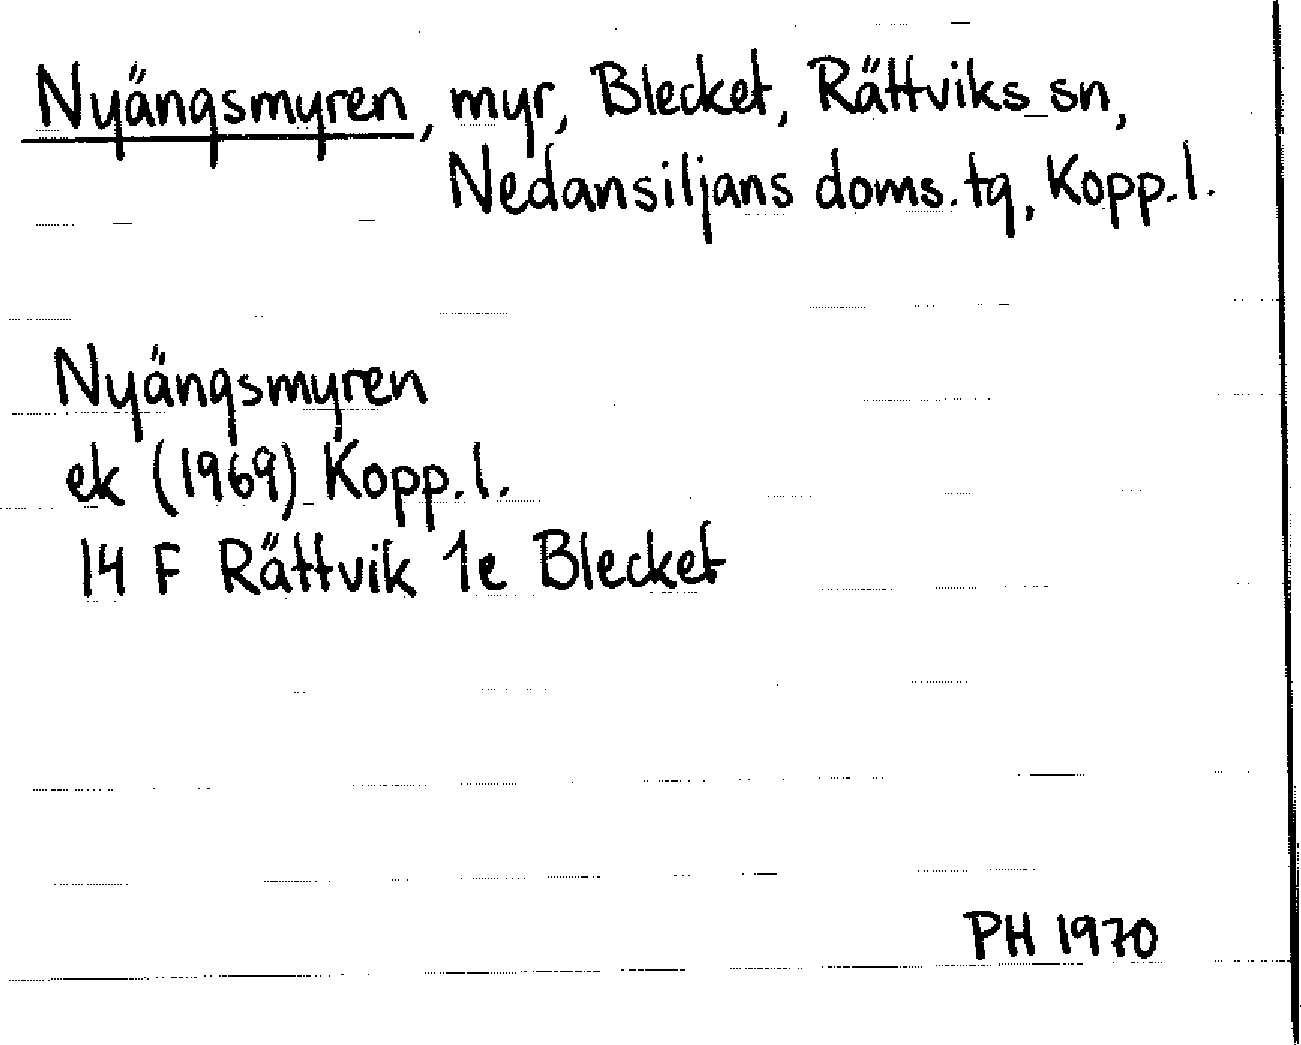 Nyängsmyren, myr, Blecket, Rättviks sn,
Nedansiljans doms. tg, Kopp. l.
Nyängsmyren
ek (1969) Kopp. l.
14 F Rättvik 1e Blecket
PH 1970